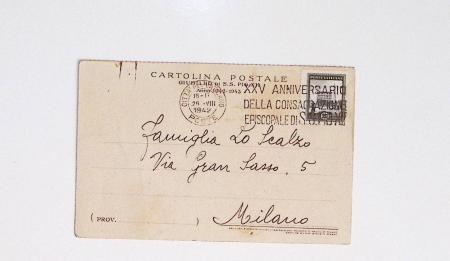 CARTOLINA POSTALE
GIUBILEO DI S.S. PIO XII
Anno 1942-1943
XXV ANNIVERSARIO
DELLA CONSACRAZIONE
EPISCOPALE DI S.S. PIO XII
26.VIII
1942
POSTE
POSTE VATICANE
Famiglia Lo Scalzo
Via Gran Sasso, 5
Milano
( PROV.
)